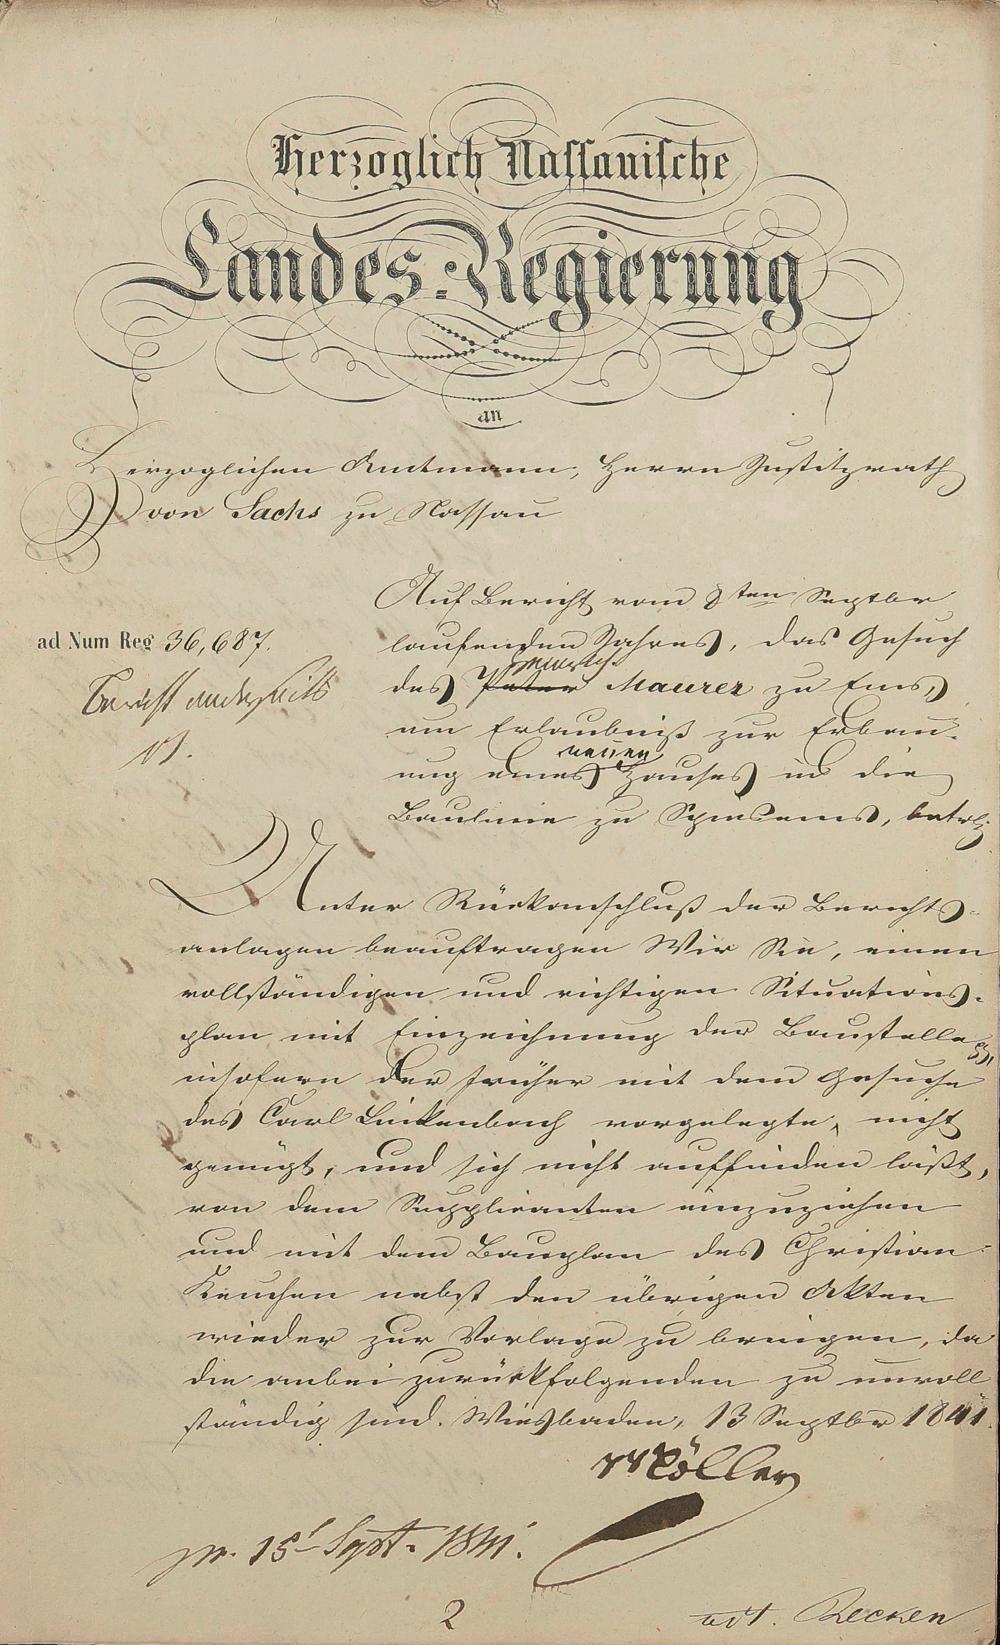 Herzoglich Nassauische
Landes=Regierung
an
Herzoglichen Amtmann, Herrn Justizrath
von Sachs zu Nassau
Auf Bericht vom 8ten Septbr
ad Num Reg 36,687.
laufenden Jahres, das Gesuch
Heinrich
des Peter Maurer zu Ems,
um Erlaubniß zur Erbau-
neuen
ung eines Hauses in die
Baulinie zu Spiesems, betrf.
Unter Rückanschluß der Berichts-
anlagen beauftragen Wir Sie, einen
vollständigen und richtigen Situations-
plan mit Einzeichnung der Baustelle
insofern der früher mit dem Gesuche
des Carl Linkenbach vorgelegte, nicht
genügt, und sich nicht auffinden läßt,
von dem Supplicanten einzuziehen
und mit dem Bauplan des Christian
Keuchen nebst den übrigen Akten
wieder zur Vorlage zu bringen, da
die anbei zurückfolgenden zu unvoll
ständig sind. Wiesbaden, 13 Septbr 1841.
Möller
pr. 15t Sept. 1841.
2
vdt. Recken